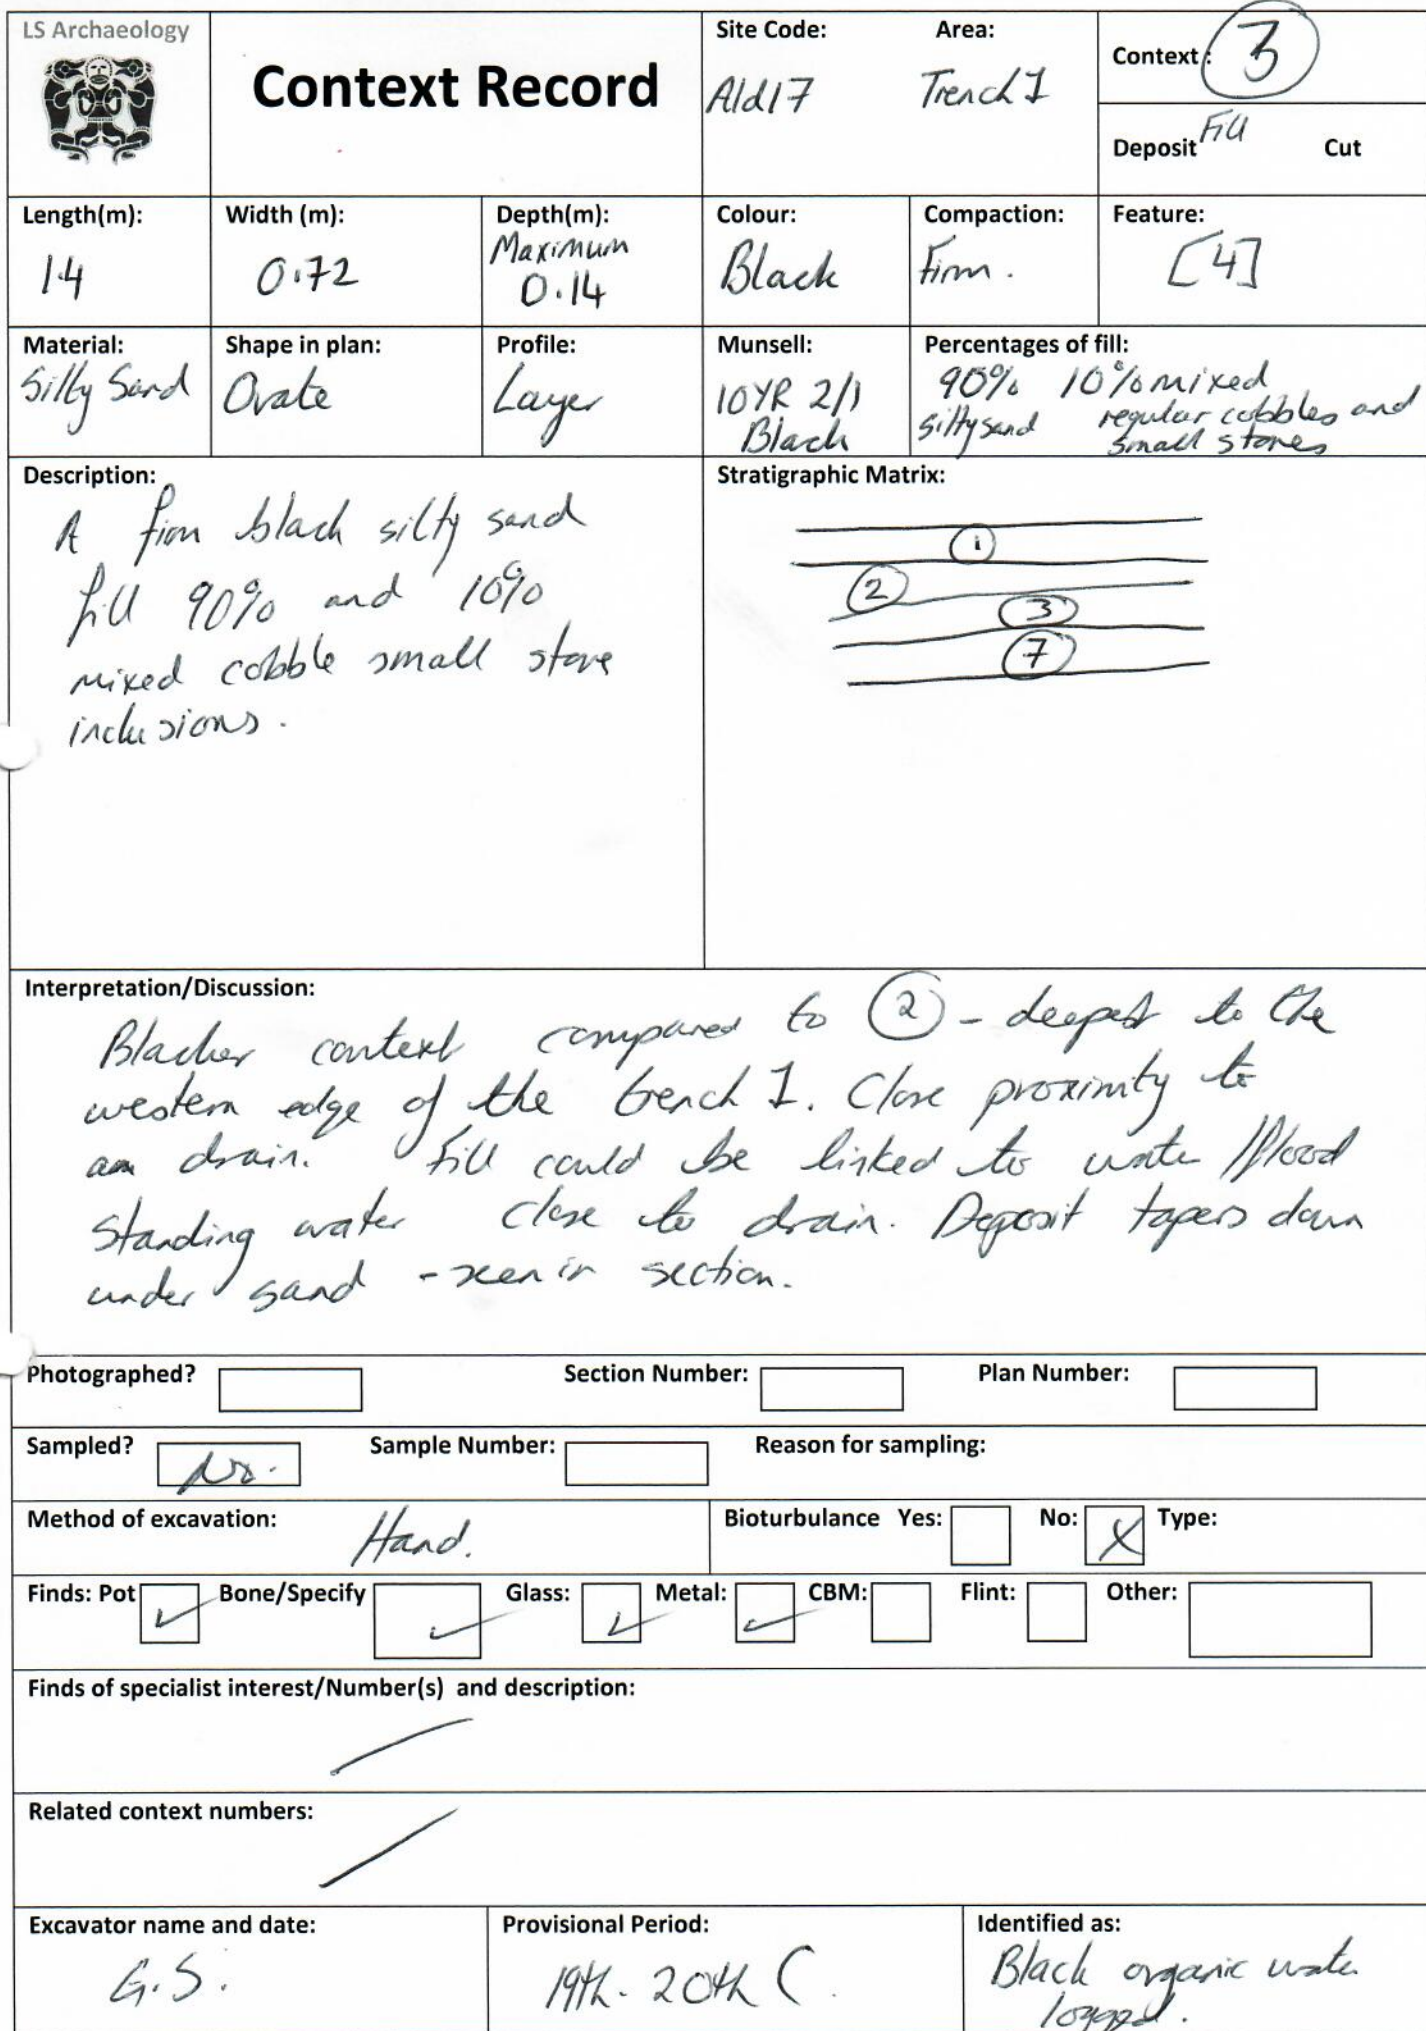 LS Archaeology
Context Record
Site Code: Area:
Ald17 Trench 1
Context: 3
Deposit Fill Cut
Length(m): Width (m): Depth(m): Colour: Compaction: Feature:
1.4 0.72 Maximum Black Firm. [4]
0.14
Material: Shape in plan: Profile: Munsell: Percentages of fill:
Silty Sand Ovate Layer 10YR 2/1 90% 10% mixed
Black silty sand regular cobbles and
small stones
Description:
A firm black silty sand
fill 90% and 10%
mixed cobble small stone
inclusions.
Stratigraphic Matrix:
1
2
3
7
Interpretation/Discussion:
Blacker context compared to 2 - deepest to the
western edge of the trench 1. Close proximity to
a drain. Fill could be linked to water / flood
standing water close to drain. Deposit tapers down
under sand - seen in section.
Photographed? Section Number: Plan Number:
Sampled? No. Sample Number: Reason for sampling:
Method of excavation: Hand. Bioturbulance Yes: No: X Type:
Finds: Pot ✓ Bone/Specify ✓ Glass: ✓ Metal: ✓ CBM: Flint: Other:
Finds of specialist interest/Number(s) and description:
/
Related context numbers:
/
Excavator name and date: Provisional Period: Identified as:
G.S. 19th - 20th C. Black organic water
logged.